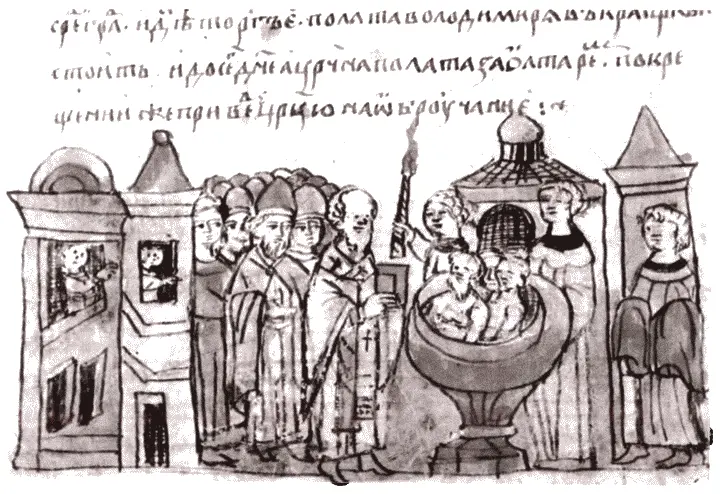 срⷣе граⷣ. идⷤѣ торгъ е. полата володимиря въ краи цр҃кви
стоить. и до сеⷢ дн҃е а цр҃чна полата за ѡлтареⷨ. по кре
щении же привⷣе цр҃цю на ѡбъроучание :~